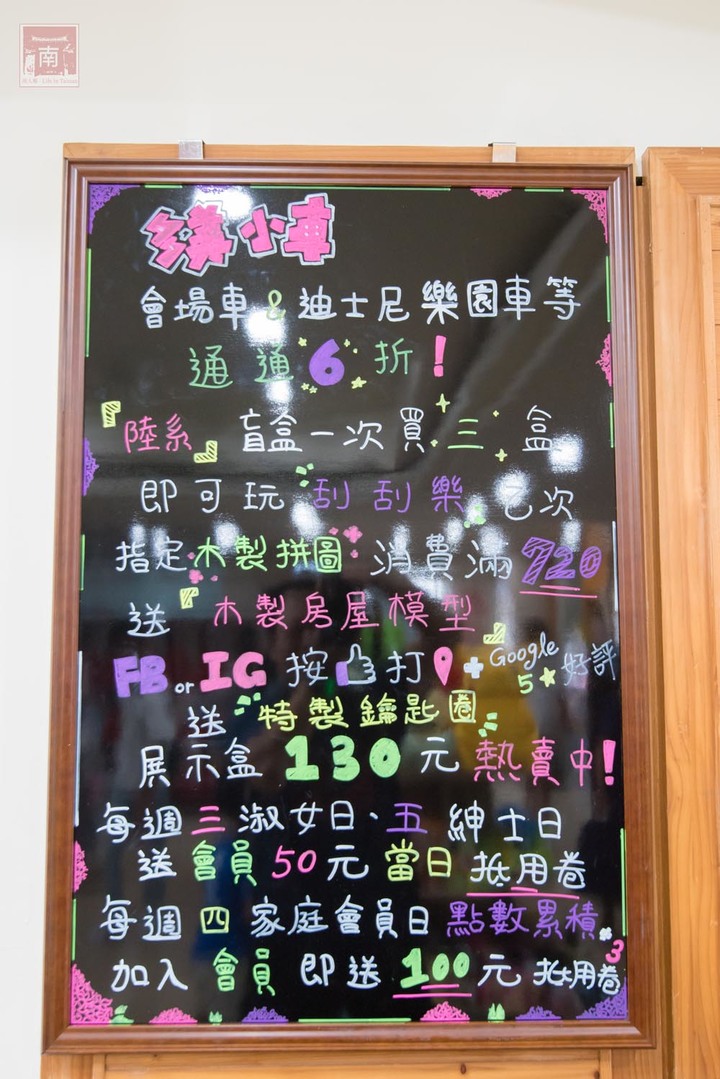 南
多美小車
會場車&迪士尼樂園車等
通通6折!
『陸系』盲盒一次買三盒
即可玩刮刮樂乙次
指定木製拼圖消費滿720
送『木製房屋模型』
FB or IG 按打+Google 5★好評
送特製鑰匙圈
展示盒130元熱賣中!
每週三淑女日、五紳士日
送會員50元當日抵用卷
每週四家庭會員日點數累積×3
加入會員即送100元抵用卷